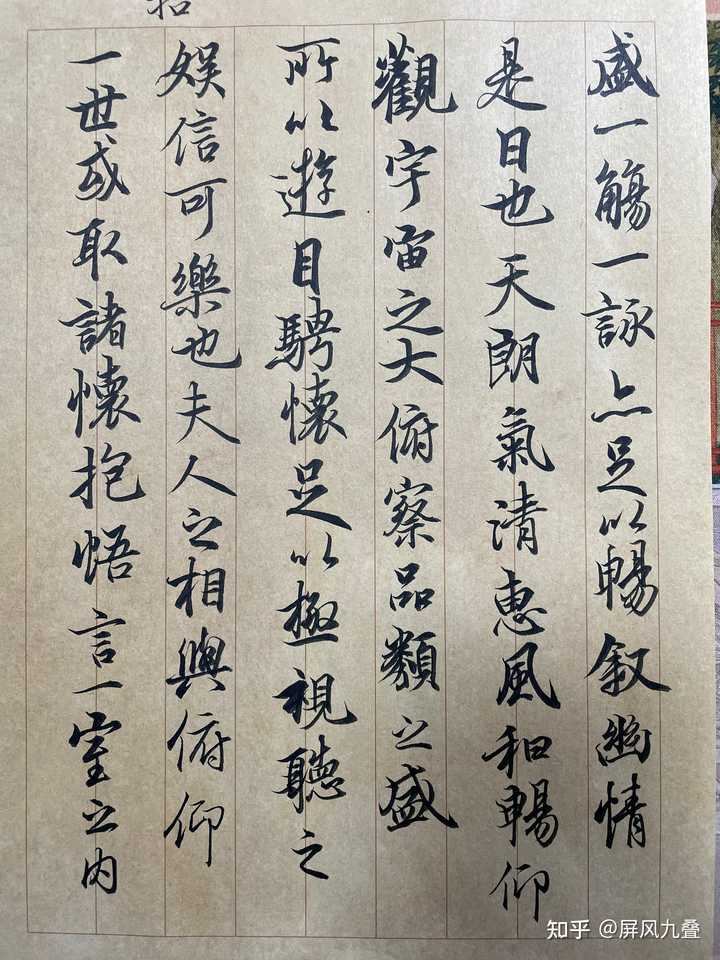 盛一觴一詠亦足以暢叙幽情
是日也天朗氣清惠風和暢仰
觀宇宙之大俯察品類之盛
所以遊目騁懷足以極視聽之
娱信可樂也夫人之相與俯仰
一世或取諸懷抱悟言一室之内
知乎 @屏风九叠